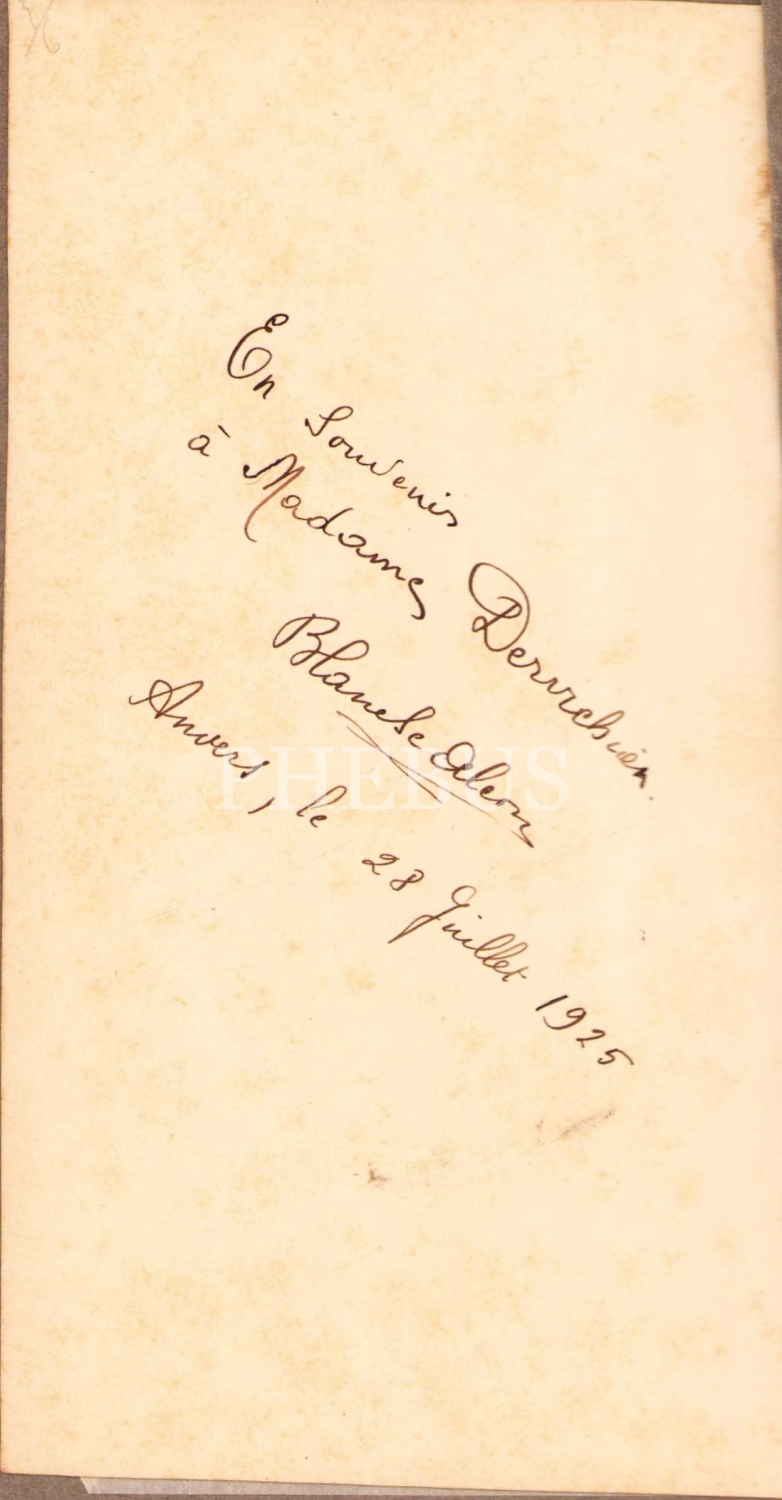 En Souvenir
à Madame Dervichian.
Blanche Alcon
Anvers, le 28 Juillet 1925
PHEBUS